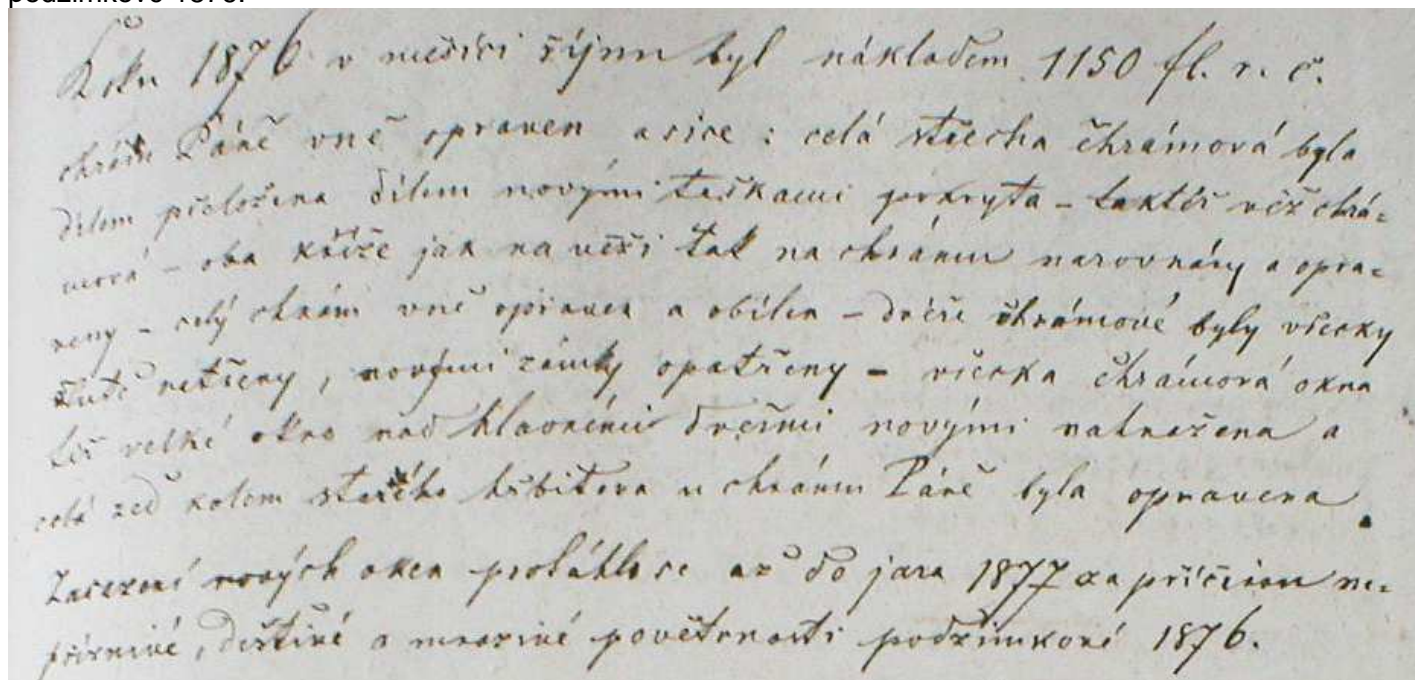 Roku 1876 v měsíci říjnu byl nákladem 1150 fl. r. č.
chrám Páně vně opraven a sice: celá střecha chrámová byla
dílem přeložena dílem novými taškami pokryta – taktéž věž chrá-
mová – oba kříže jak na věži tak na chrámu narovnány a opra-
veny – celý chrám vně opraven a obílen – dvéře chrámové byly všecky
žutě natřeny, novými zámky opatřeny – všecka chrámová okna
též velké okno nad hlavními dveřmi novými nahražena a
celá zeď kolem starého hřbitova u chrámu Páně byla opravena.
Zasazení nových oken protáhlo se až do jara 1877 za příčinou ne-
příznivé, deštivé a mrazivé povětrnosti podzimkové 1876.